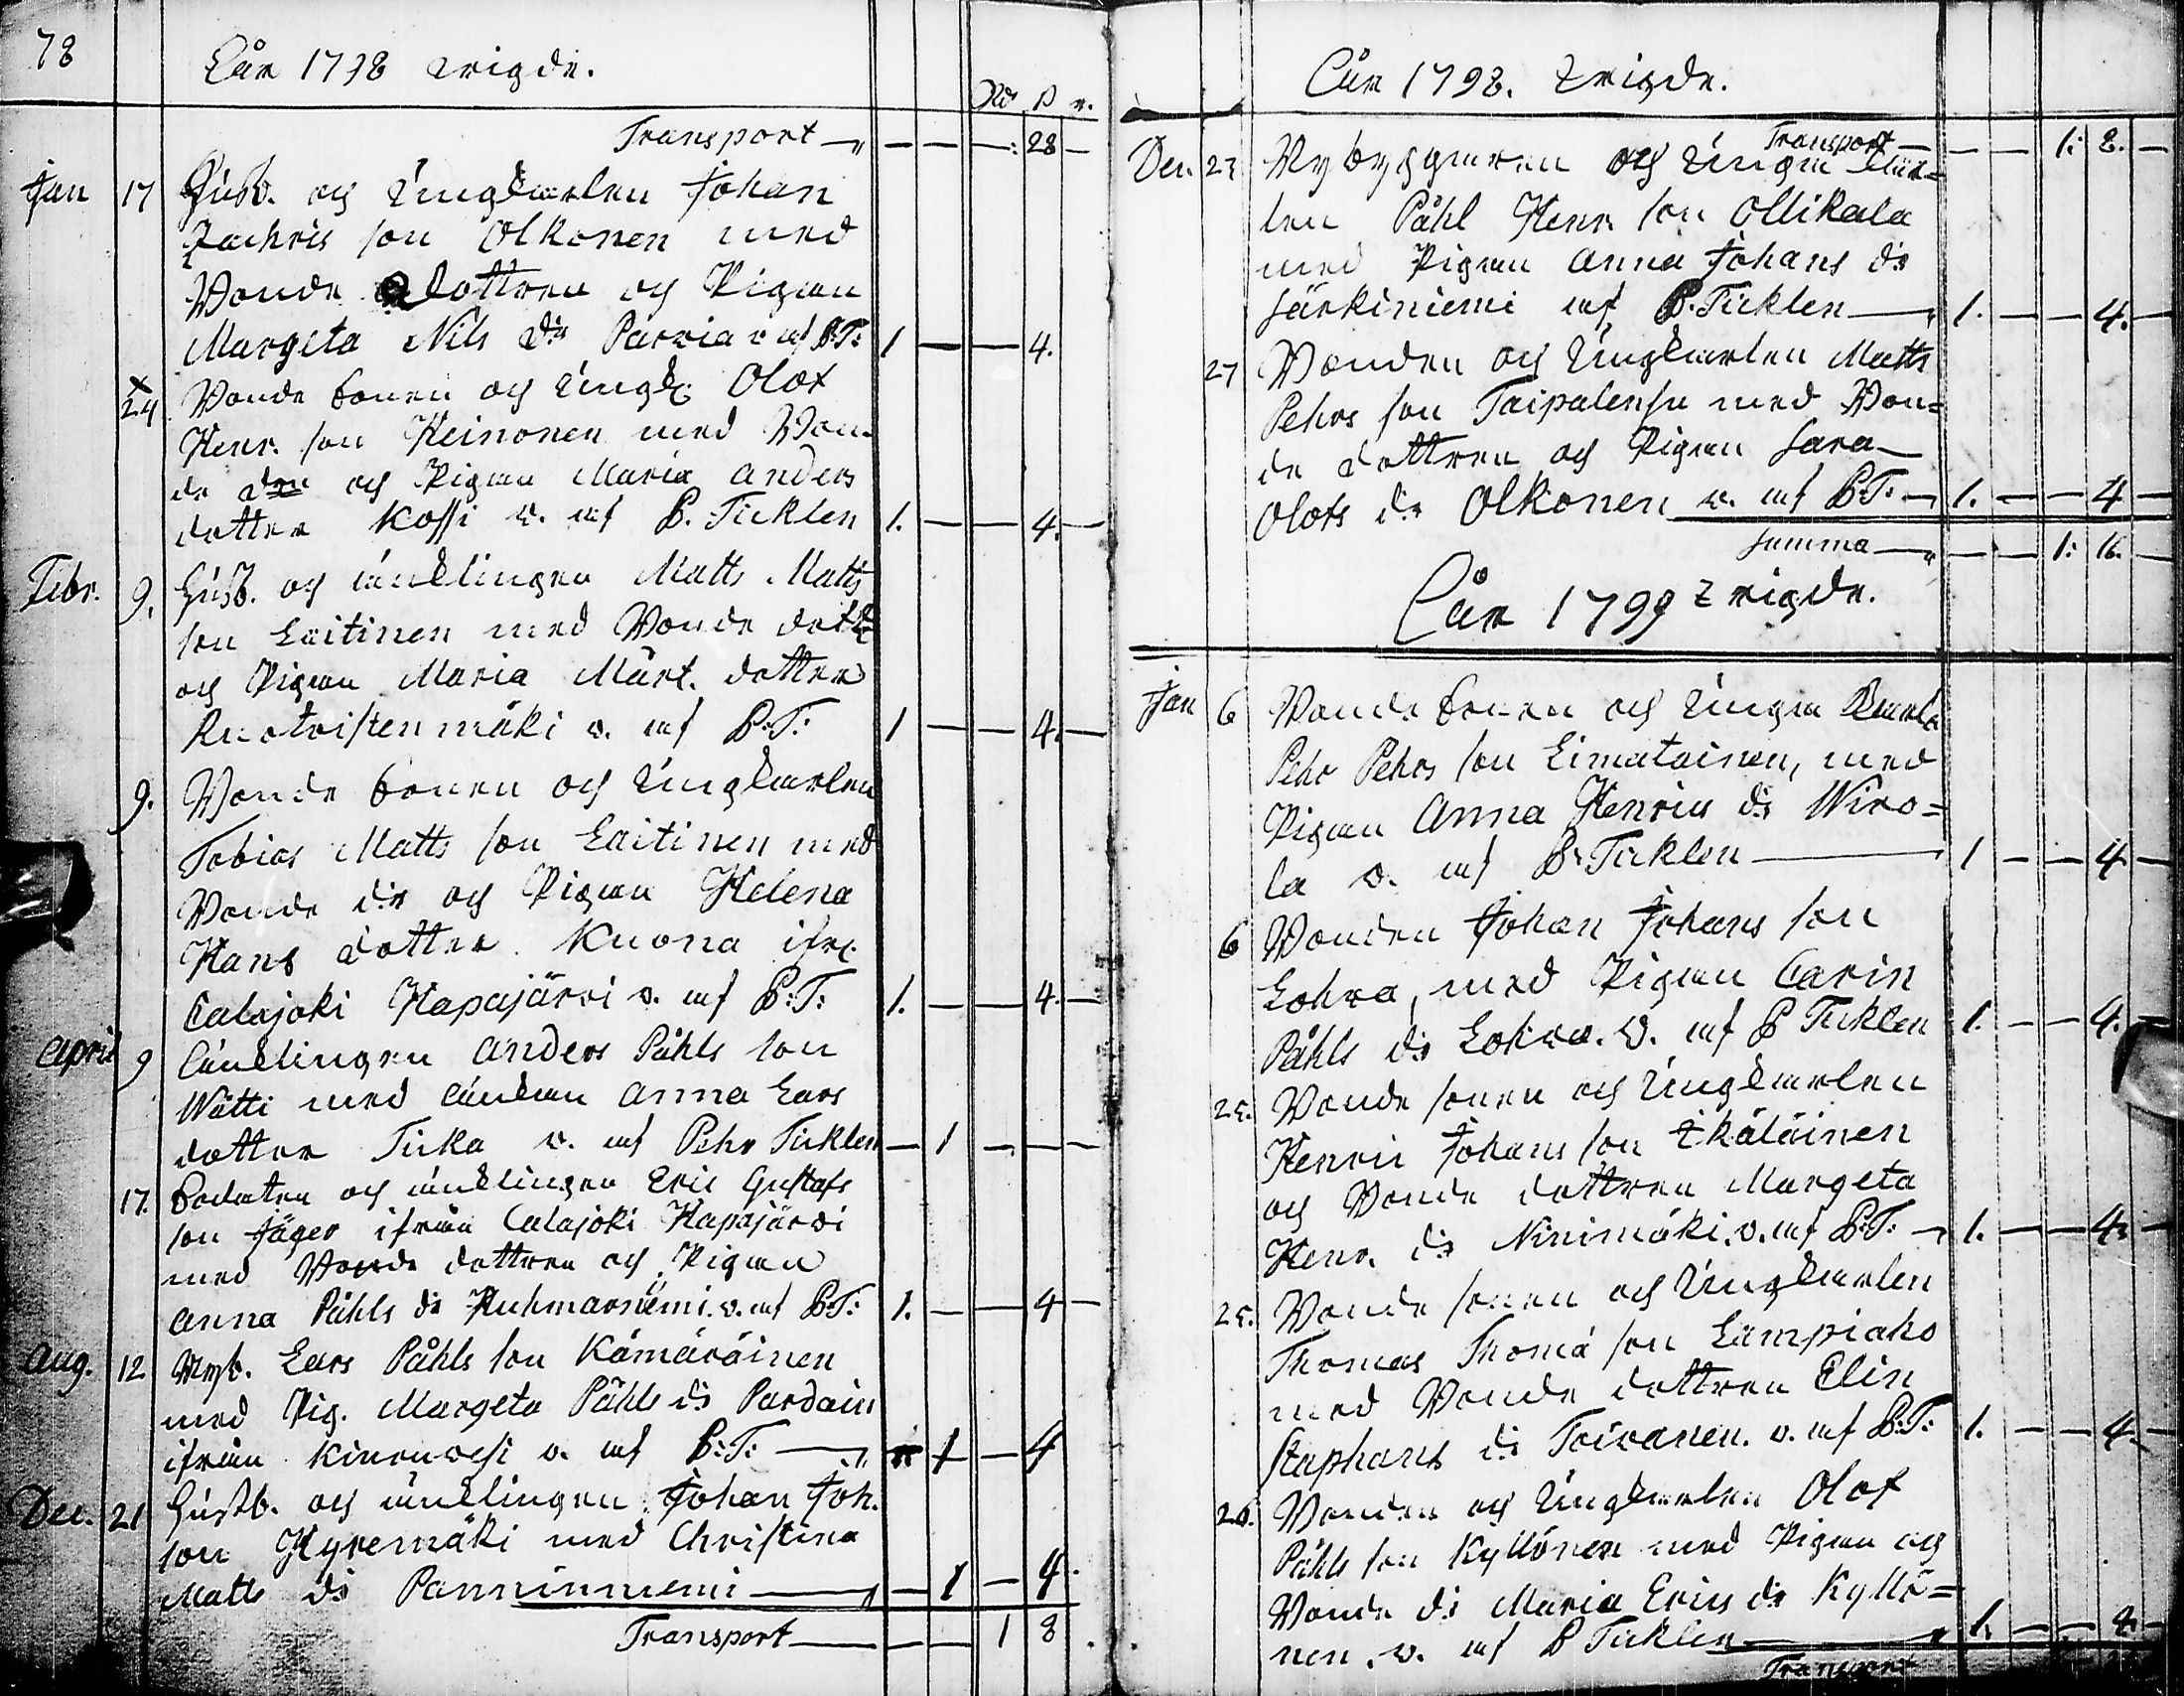 78
Åår 1798 wigde.
Rd ß r.
Transport — 28
Jan 17 Husb. och Ungkarlen Johan
Zachris son Olkonen med
Bonde dottren och Pigan
Margeta Nils dr Parviar af P:T: 1 4.
24 Bonde sonen och Ungk. Olof
Henr. son Heinonen med Bon-
de och Pigan Maria Anders
dotter Kossi v. af P. Ticklen 1. 4.
Febr. 9. Husb. och änklingen Matts Matts
son Laitinen med Bonde dott.
och Pigan Maria Mårt. dotter
v. af P:T: 1 4.
9. Bonde sonen och Ungkarlen
Tobias Matts son Laitinen med
Bonde dr och Pigan Helena
Hans dotter Kuona ifr.
Calajoki Hapajärvi v. af P:T: 1. 4.
April 9 Änklingen Anders Påhls son
Wätti med Änkan Anna Lars
dotter Ticka v. af Pehr Ticklen 1
17. Soldaten och änklingen Eric Gustafs
son Jäger ifrån Calajoki Hapajärvi
med Bonde dottren och Pigan
Anna Påhls dr Kuhmarniemi v. af P:T: 1. 4
Aug. 12 Nyb. Lars Påhls son Kämäräinen
med Pig. Margeta Påhls dr Pardain
ifrån Kinruvesi v. af P:T: 1 4
Dec. 21 Husb. och änklingen Johan Joh.
son Hyremäki med Christina
Matts dr 1 4.
Transport 1 8
Åår 1798. wigde.
Transport 1: 8.
Dec. 23 Nybyggaren och Unga Kar-
len Påhl Henr. son Ollikala
med Pigan Anna Johans dr
Särkiniemi af P. Ticklen 1. 4.
27 Bonden och Ungkarlen Matts
Pehrs son Taipalensu med Bon-
de dottren och Pigan Sara
Olofs dr Olkonen v. af P:T: 1. 4
Summa 1: 16.
Åår 1799 wigde.
Jan 6 Bonde sonen och Unga Karlen
Pehr Pehrs son Limatainen, med
Pigan Anna Henrics dr Wiro-
la v. af P. Ticklen 1 4
6 Bonden Johan Johans son
Lohva, med Pigan Carin
Påhls dr Lohva. v. af P Ticklen 1. 4.
25. Bonde sonen och Ungkarlen
Henric Johans son Ikäläinen
och Bonde dottren Margeta
Henr. dr Ninimäki. v. af P:T: 1. 4.
25. Bonde sonen och Ungkarlen
Thomas Thomá son Lampiaho
med Bonde dottren Elin
Staphans dr Toivanen. v. af P:T: 1. 4.
26. Bonden och Ungkarlen Olof
Påhls son Kyllönen med Pigan och
Bonde dr Maria Erics dr Kyllö-
nen. v. af P Ticklen 1. 4.
Transport